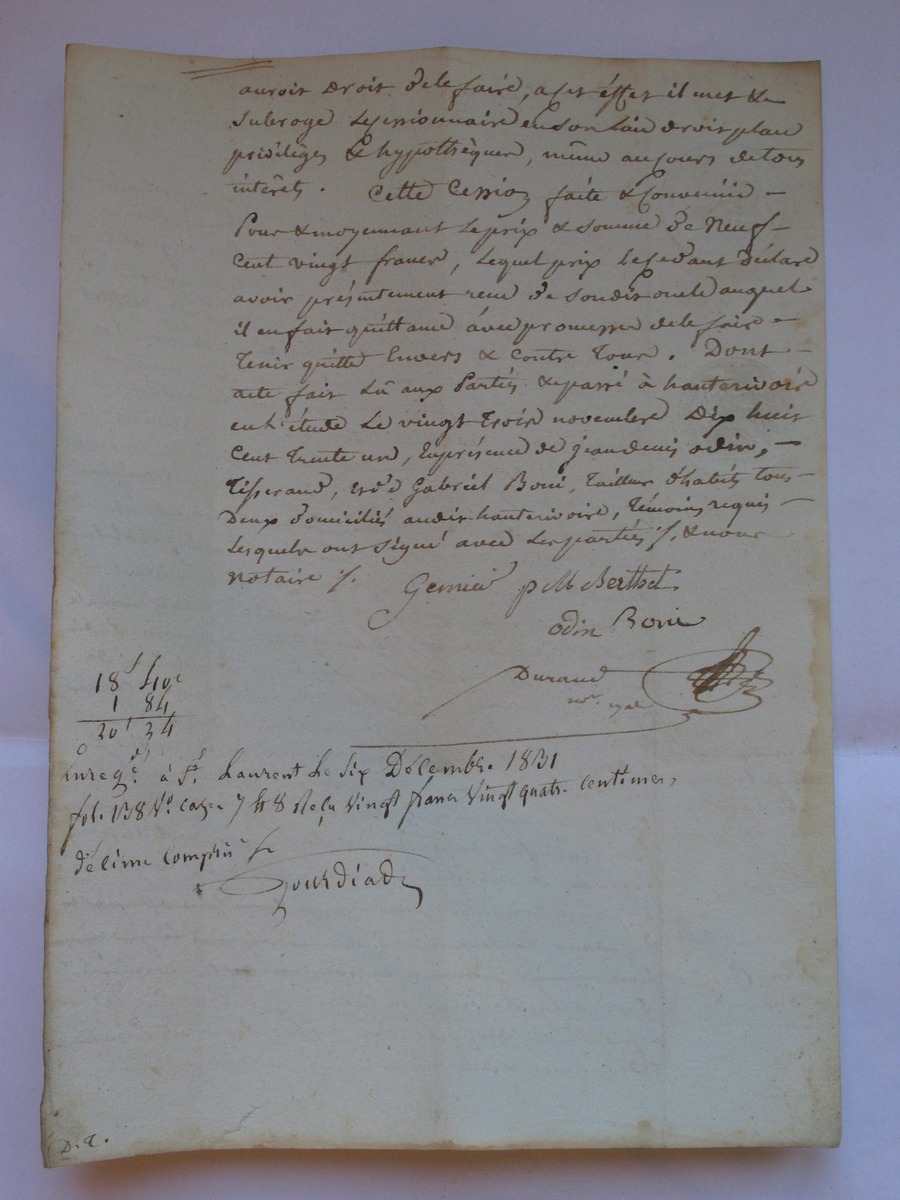 auroit droit de le faire, a cet éffet il met &
subroge le cessionnaire en son lieu droit place
priviléges & hypothèques, même au cours de tous
intérêts. Cette Cession faite & Convenüe –
Pour & moyennant le prix & somme de Neuf
Cent vingt francs, lequel prix le cédant déclare
avoir présentement reçu de son dit oncle auquel
il en fait quittance avec promesse de le faire –
tenir quitte Envers & Contre Tous. Dont –
acte fait Lû aux Parties & passé à hauterivoire
en l'étude Le vingt trois novembre Dix huit
Cent trente un, En présence de jean denis odin, –
Tisserand, et de Gabriel Boni, Tailleur d'habits tous
Deux domiciliés audit hauterivoire, témoins requis –
Lesquels ont signé avec les parties & nous
notaire
p M Berthet
odin Boni
Durand
18f 40c
1 84
20f 24
Enregé. à St. Laurent le six Décembre 1831
fol. 138 Vo. case 7 & 8 reçu Vingt francs Vingt quatre centimes,
décime compris
D. R.